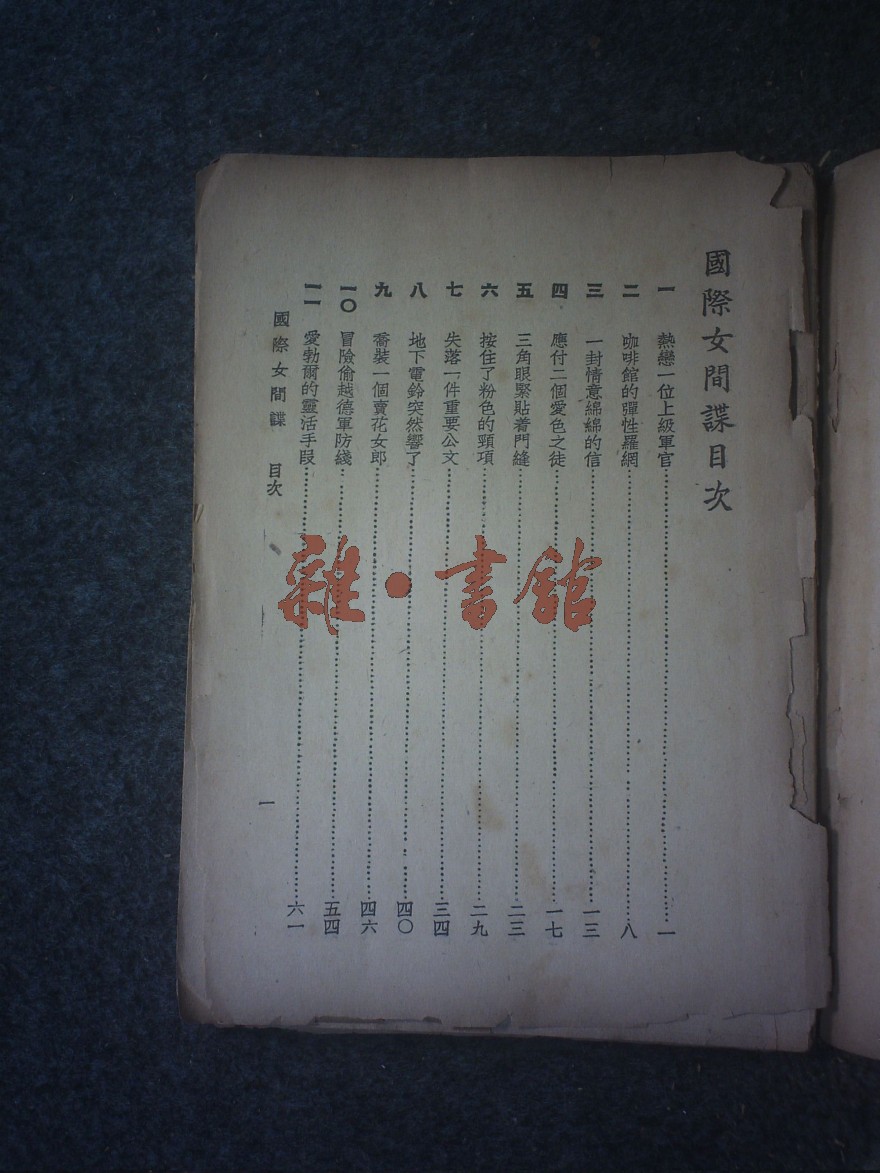 國際女間諜目次
一 熱戀一位上級軍官……一
二 咖啡館的彈性羅網……八
三 一封情意綿綿的信……一三
四 應付二個愛色之徒……一七
五 三角眼緊貼着門縫……二三
六 按住了粉色的頸項……二九
七 失落一件重要公文……三四
八 地下電鈴突然響了……四〇
九 喬裝一個賣花女郎……四六
一〇 冒險偷越德軍防綫……五四
一一 愛勃爾的靈活手段……六一
國際女間諜 目次 一
雜·書館